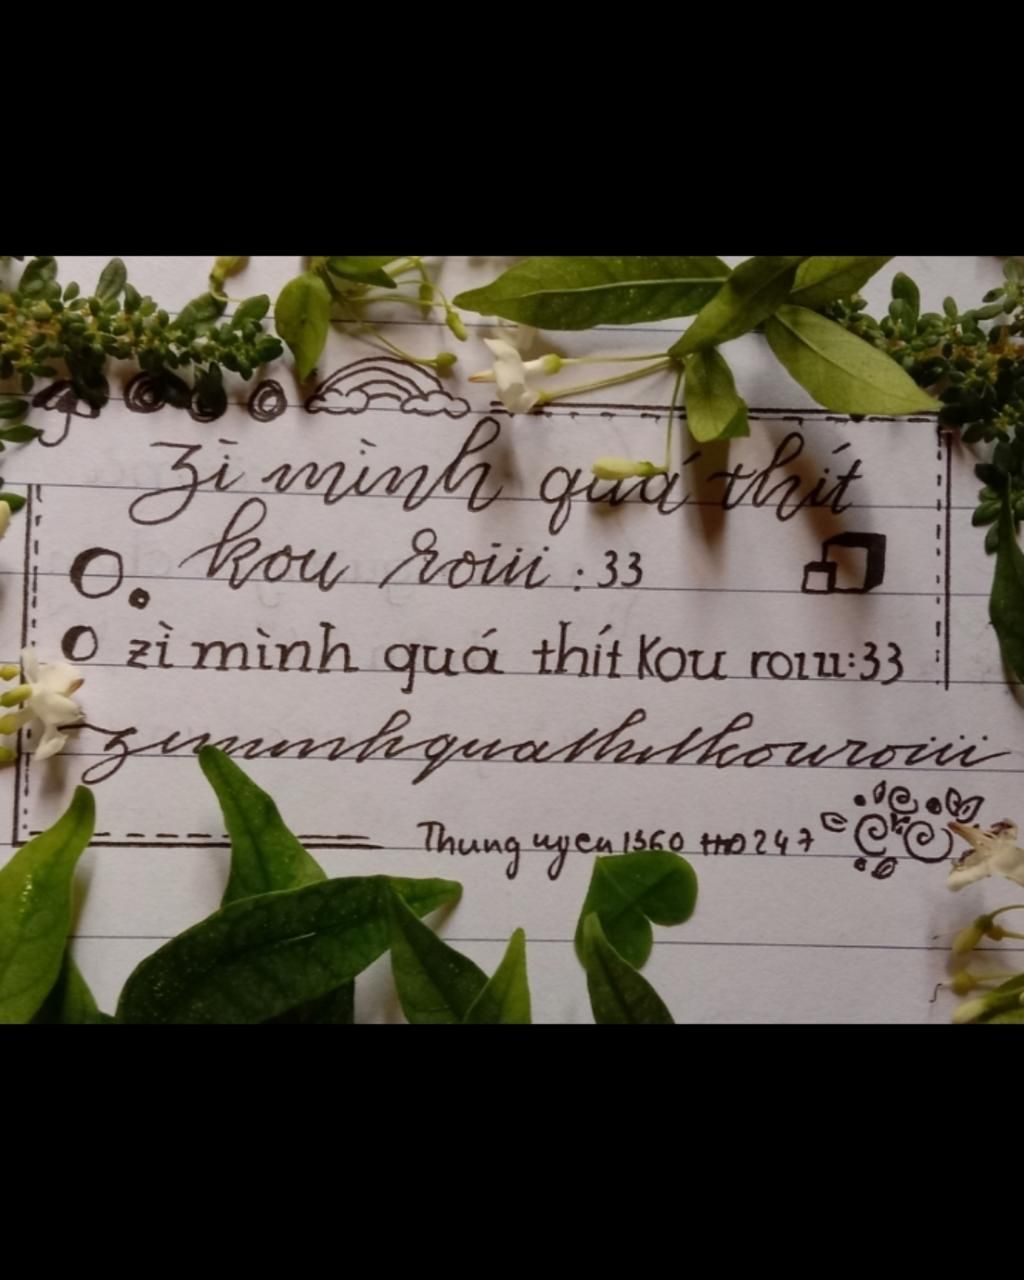 zì mình quá thít
kou roiii :33
zì mình quá thít kou roiii:33
ziminhquathitkouroiii
Thunguyen1360 HD247